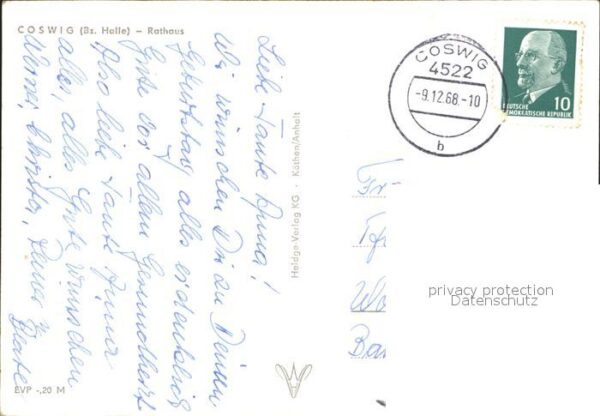 COSWIG (Bz. Halle) – Rathaus
Liebe Tante Anna!
Wir wünschen Dir zu Deinem
Geburtstag alles erdenklich
Gute vor allem Gesundheit
Also liebe Tante Anna
alles, alles Gute wünschen
Werner, Christa, u
Beate
EVP -,20 M
Heldge-Verlag KG · Köthen/Anhalt
COSWIG
4522
-9.12.68.-10
b
10
DEUTSCHE
DEMOKRATISCHE REPUBLIK
Fr
Wo
privacy protection
Datenschutz